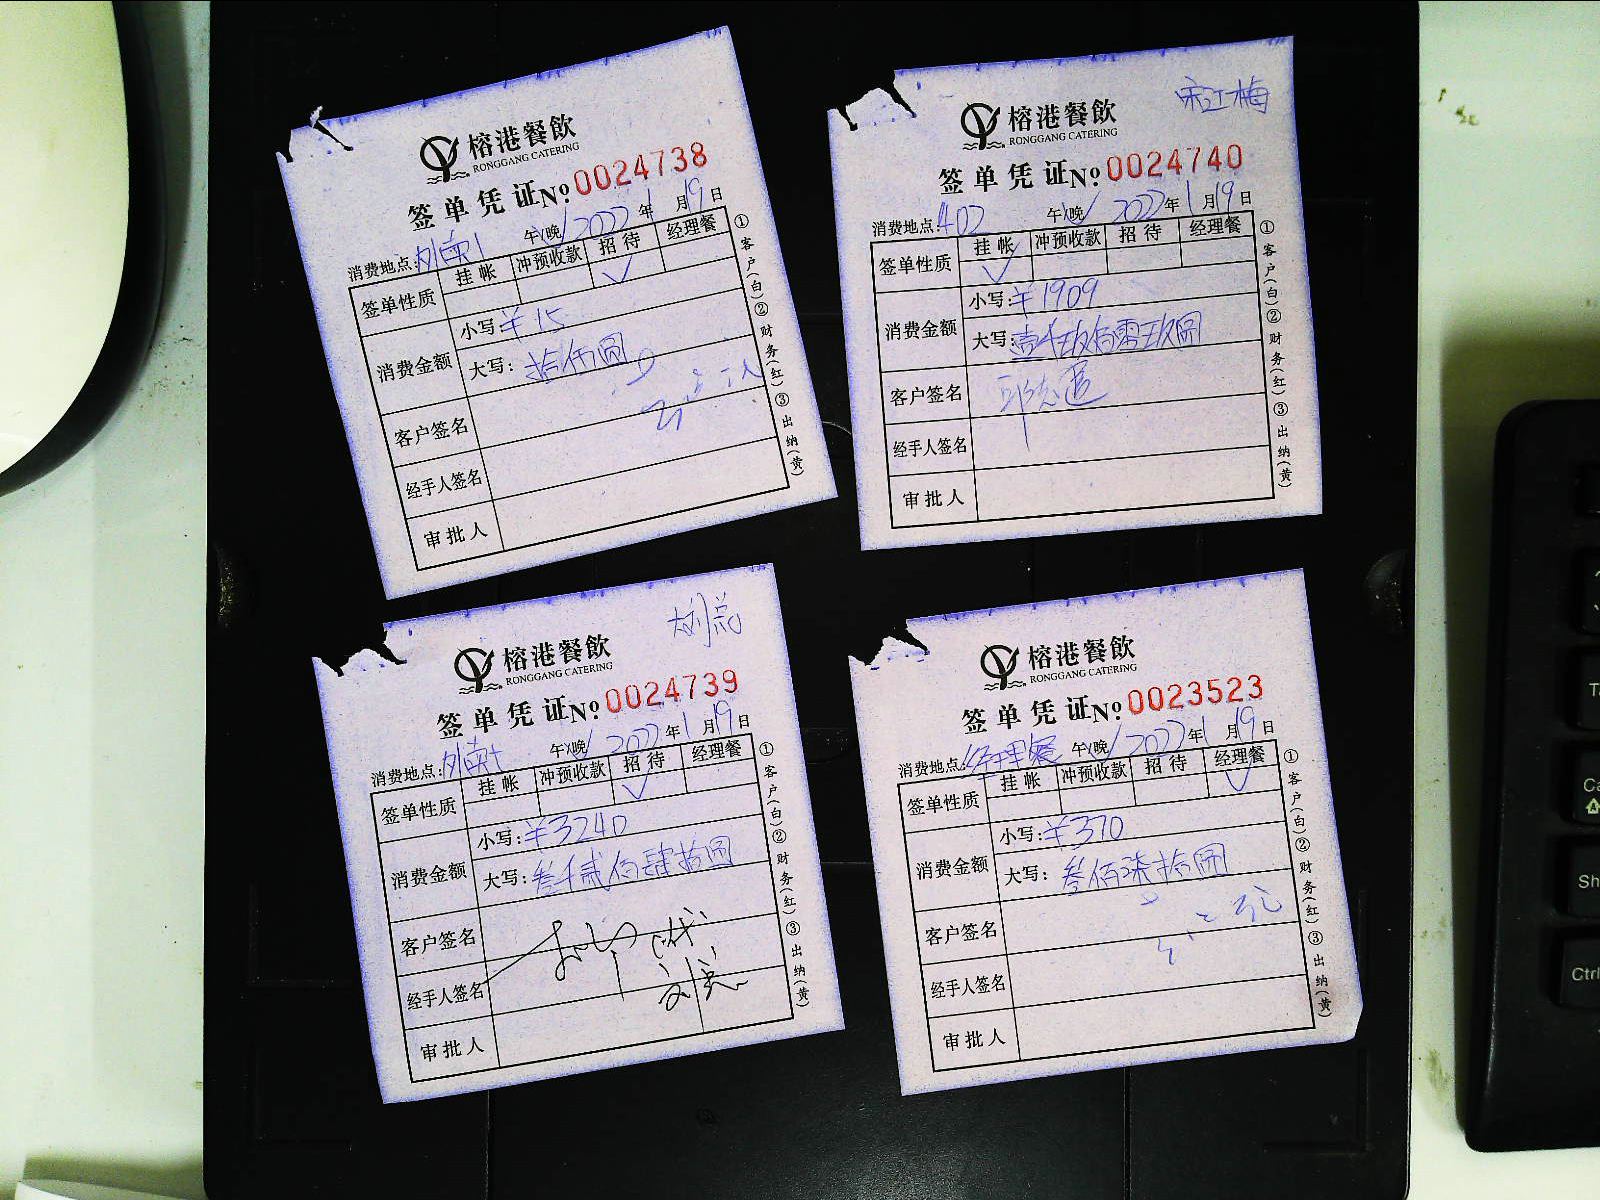 榕港餐飲
RONGGANG CATERING
签单凭证 No. 0024738
消费地点: 午/晚 2022年1月19日
签单性质 挂帐 冲预收款 招待 经理餐
✓
消费金额 小写:¥15
大写: 拾伍圆
客户签名
经手人签名
审批人
①客户(白)②财务(红)③出纳(黄)
宋江梅
榕港餐飲
RONGGANG CATERING
签单凭证 No. 0024740
消费地点:402 午/晚 2022年1月19日
签单性质 挂帐 冲预收款 招待 经理餐
✓
消费金额 小写:¥1909
大写:壹仟玖佰零玖圆
客户签名
经手人签名
审批人
①客户(白)②财务(红)③出纳(黄)
大刘总
榕港餐飲
RONGGANG CATERING
签单凭证 No. 0024739
消费地点: 午/晚 2022年1月19日
签单性质 挂帐 冲预收款 招待 经理餐
✓
消费金额 小写:¥3240
大写:叁仟贰佰肆拾圆
客户签名
经手人签名 刘总
审批人
①客户(白)②财务(红)③出纳(黄)
榕港餐飲
RONGGANG CATERING
签单凭证 No. 0023523
消费地点:经理餐 午/晚 2022年1月19日
签单性质 挂帐 冲预收款 招待 经理餐
✓
消费金额 小写:¥370
大写: 叁佰柒拾圆
客户签名
经手人签名
审批人
①客户(白)②财务(红)③出纳(黄)
Ctrl